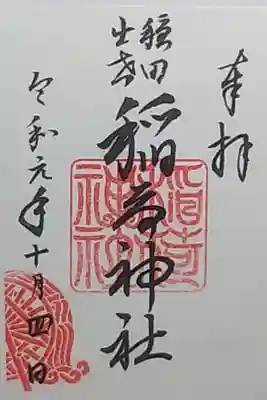 奉拝
出世
稲荷神社
令和元年十月四日